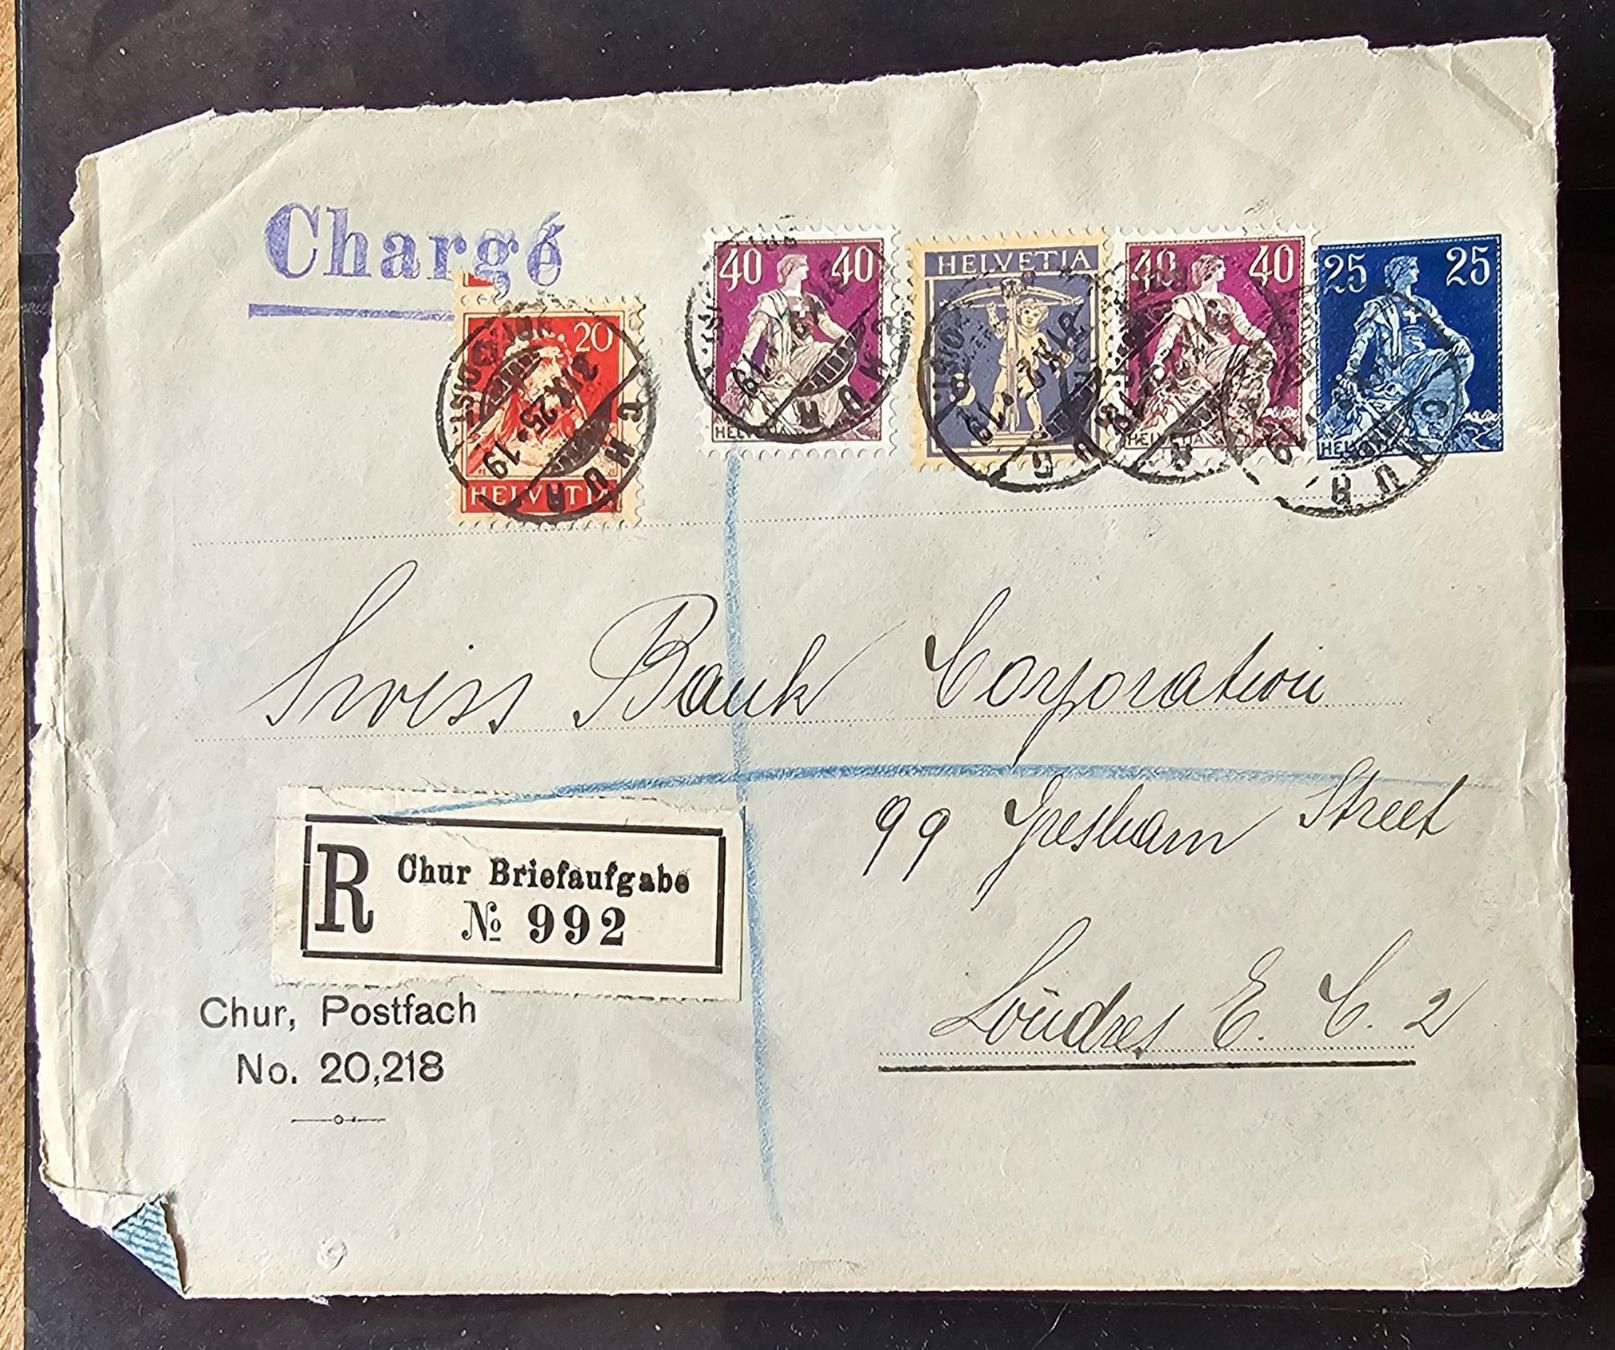 Chargé
20
HELVETIA
CHUR
2.IX.25.19
40 40
HELVETIA
CHUR
HELVETIA
40 40
HELVETIA
25 25
HELVETIA
Swiss Bank Corporation
99 Gresham Street
Londres E. C. 2
R Chur Briefaufgabe
№ 992
Chur, Postfach
No. 20,218